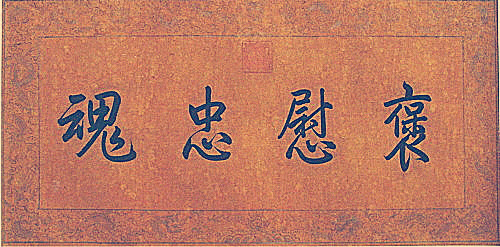 褒慰忠魂